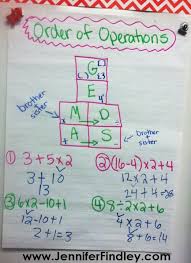 Order of Operations
G ( ) [ ] { }
E 4²
brother + sister
M D
A S
brother + sister
① 3+5×2
3+10
13
② (16-4)×2+4
12×2+4
24+4=28
③ 6×2-10+1
12-10+1
2+1=3
④ 8÷2×2+6
4×2+6
8+6=14
www.JenniferFindley.com